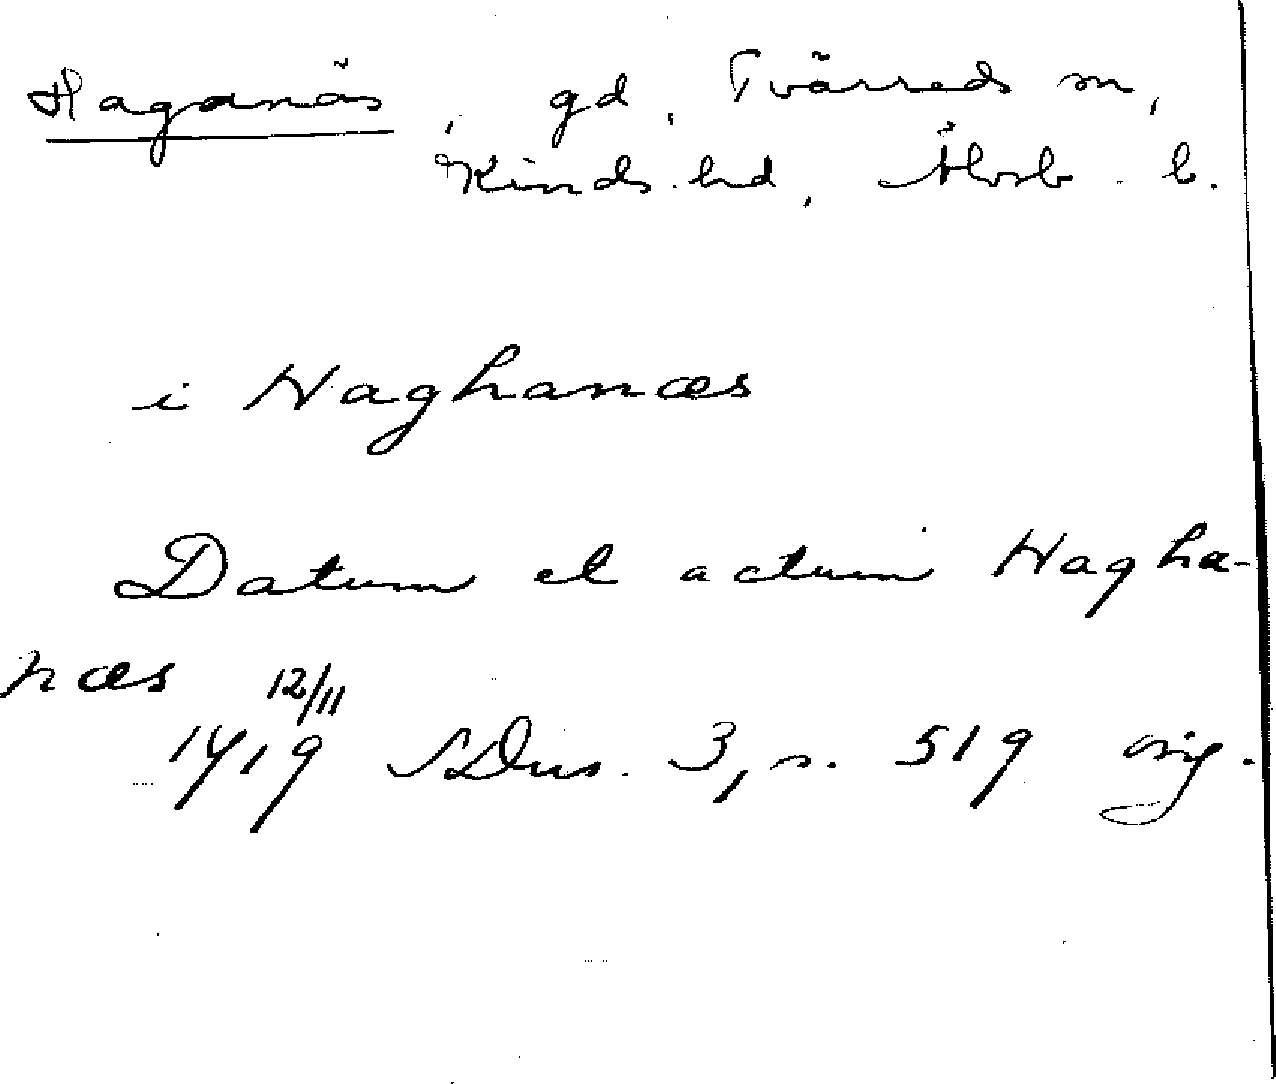 Haganäs, gd, Tvärreds sn,
Kinds hd, Älvsb. l.
i Haghanæs
Datum et actum Hagha-
næs 12/11
1419 SDns. 3, s. 519 orig.